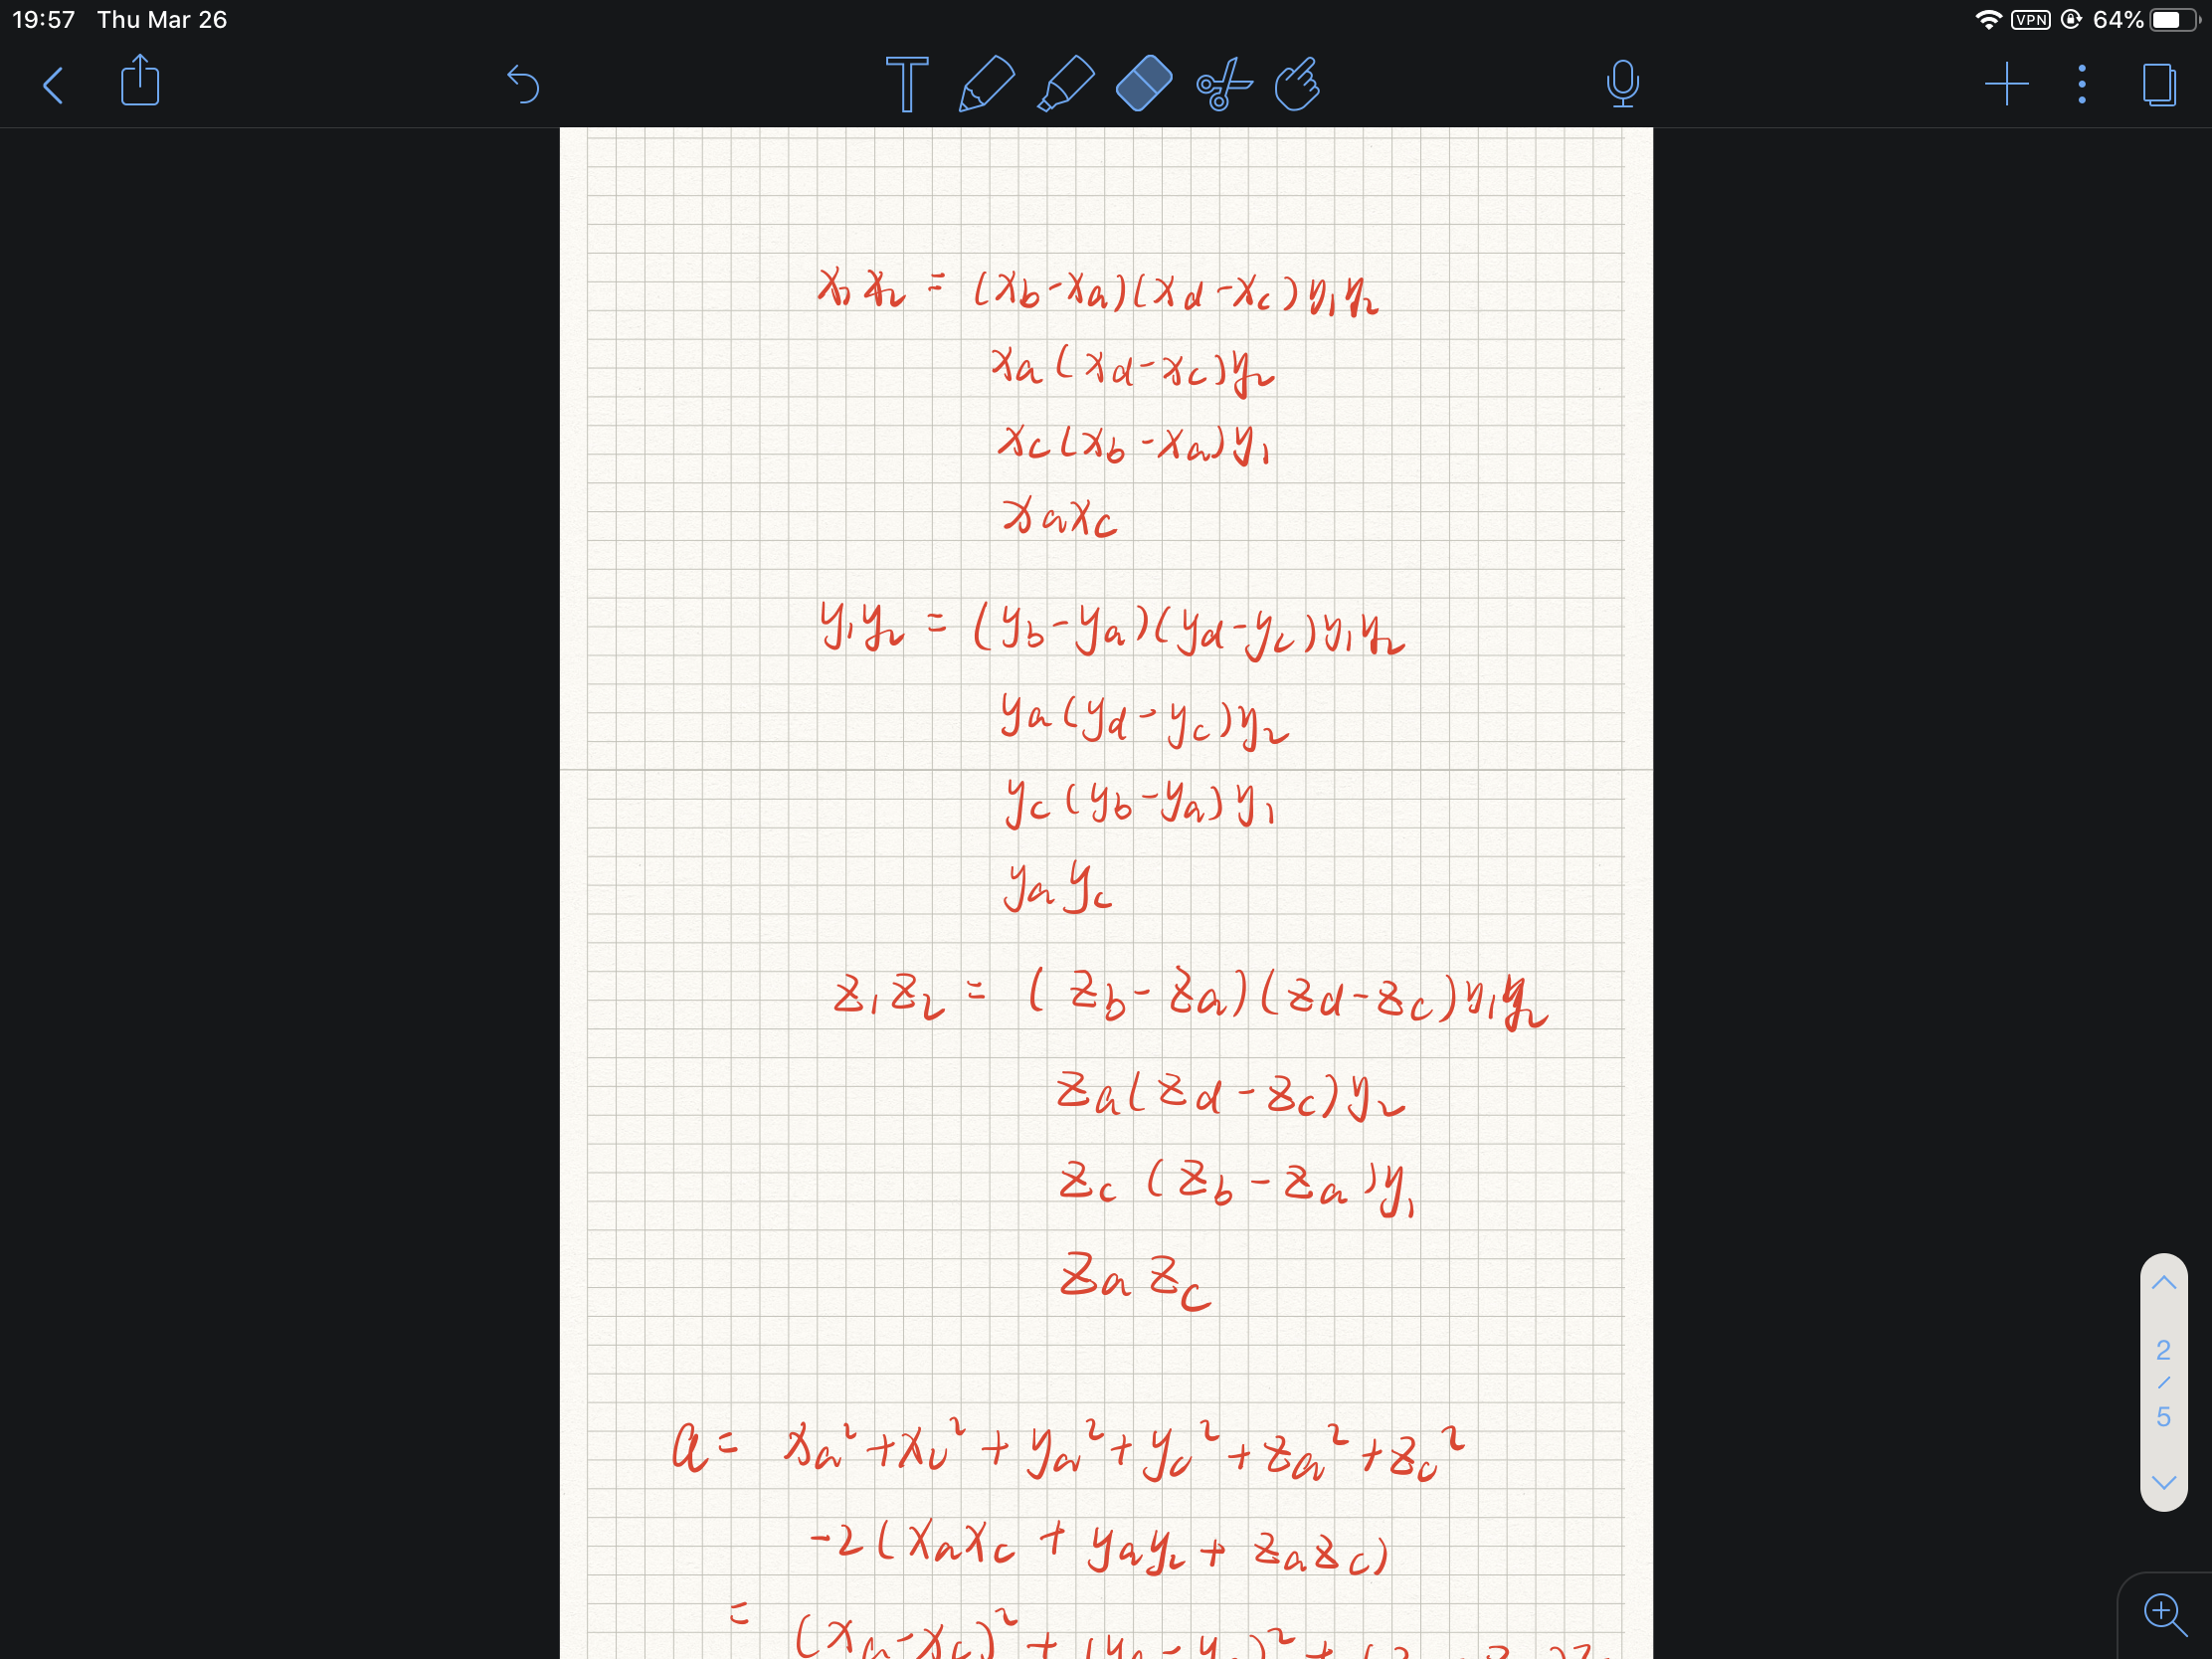 19:57 Thu Mar 26 VPN 64%
x₁x₂ = (x_b-x_a)(x_d-x_c)y₁y₂
x_a(x_d-x_c)y₂
x_c(x_b-x_a)y₁
x_ax_c
y₁y₂ = (y_b-y_a)(y_d-y_c)y₁y₂
y_a(y_d-y_c)y₂
y_c(y_b-y_a)y₁
y_ay_c
z₁z₂ = (z_b-z_a)(z_d-z_c)y₁y₂
z_a(z_d-z_c)y₂
z_c(z_b-z_a)y₁
z_az_c
2
/
5
a = x_a²+x_c²+y_a²+y_c²+z_a²+z_c²
-2(x_ax_c + y_ay_c + z_az_c)
= (x_a-x_c)² +